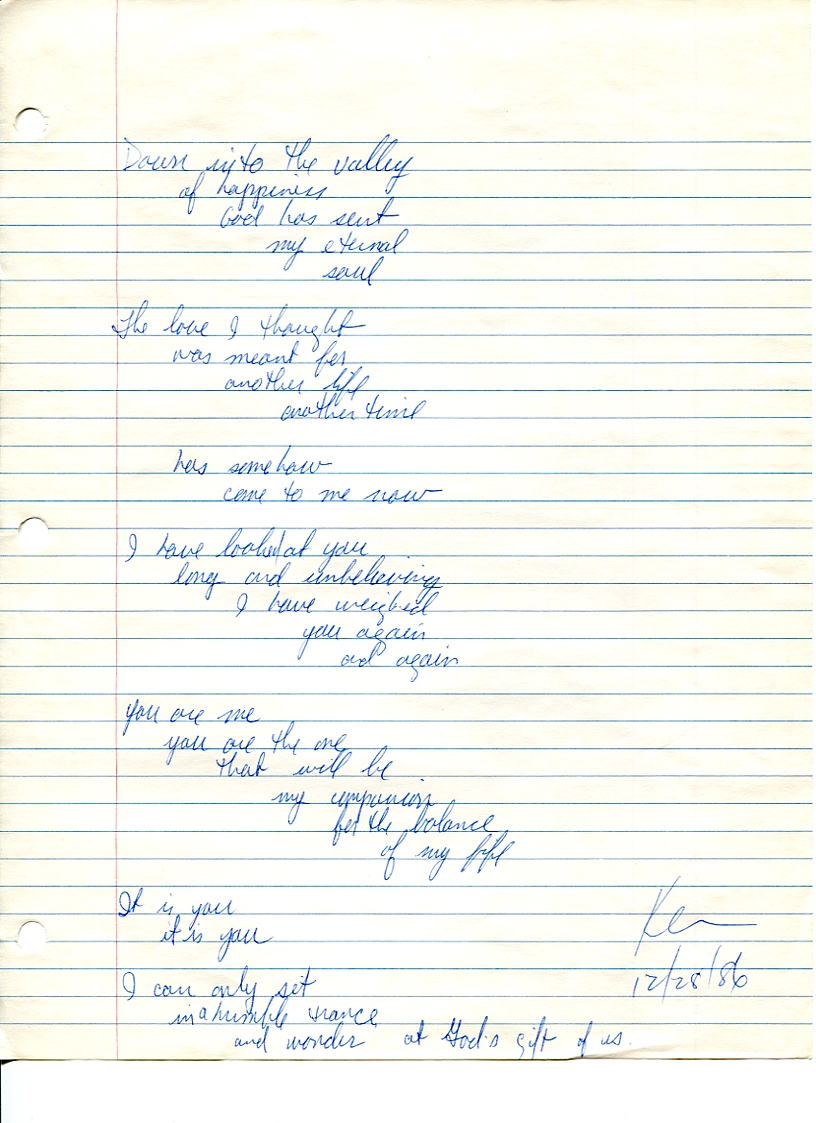 Down into the valley
of happiness
God has sent
my eternal
soul
The love I thought
was meant for
another life
another time
has somehow
come to me now
I have looked at you
long and unbelieving
I have weighed
you again
and again
you are me
you are the one
that will be
my companion
for the balance
of my life
It is you
it is you
Ken
12/28/86
I can only set
in a humble trance
and wonder at God's gift of us.